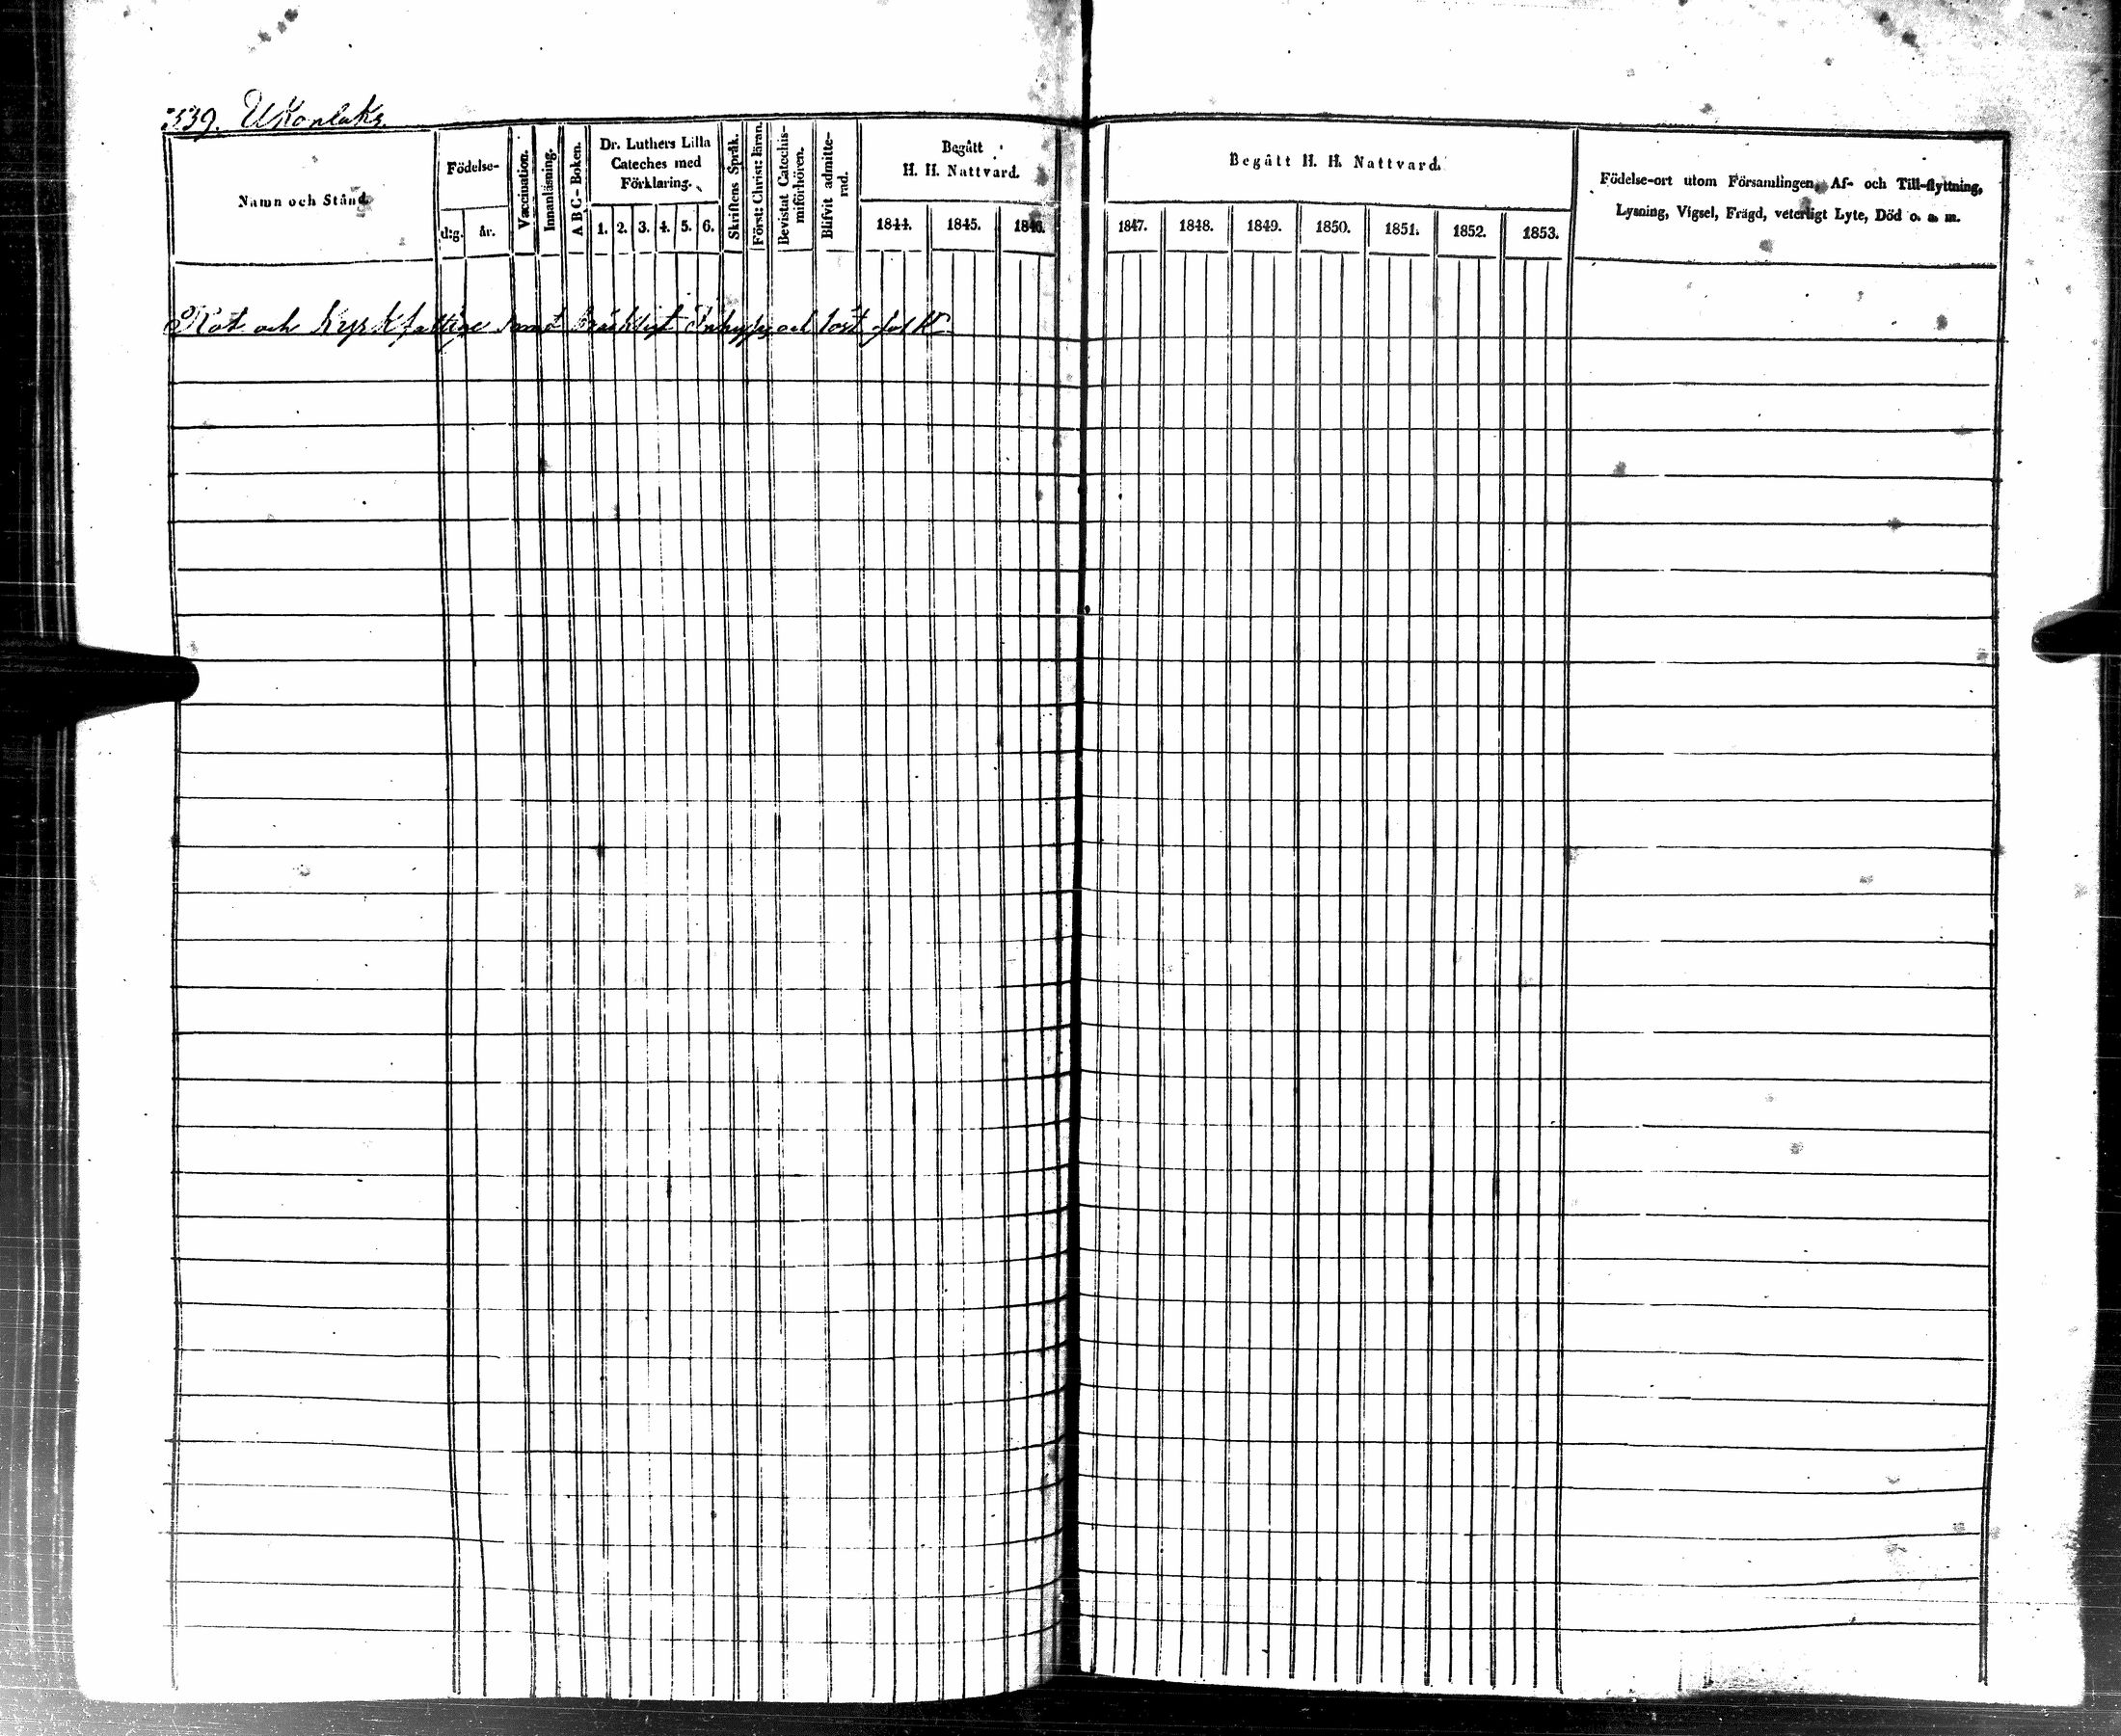 539. Ukonlaks.
Namn och Stånd.
Födelse-
d:g.
år.
Vaccination.
Innanläsning.
A B C - Boken.
Dr. Luthers Lilla
Cateches med
Förklaring.
1. 2. 3. 4. 5. 6.
Skriftens Språk.
Först: Christ: läran.
Bevistat Catechis-
miförhören.
Blifvit admitte-
rad.
Begått
H. H. Nattvard.
1844. 1845. 1846.
Begått H. H. Nattvard.
1847. 1848. 1849. 1850. 1851. 1852. 1853.
Födelse-ort utom Församlingen, Af- och Till-flyttning,
Lysning, Vigsel, Frägd, veterligt Lyte, Död o. a. m.
Rot och Kyrkfattige samt bräkligt Inhyses och löst folk